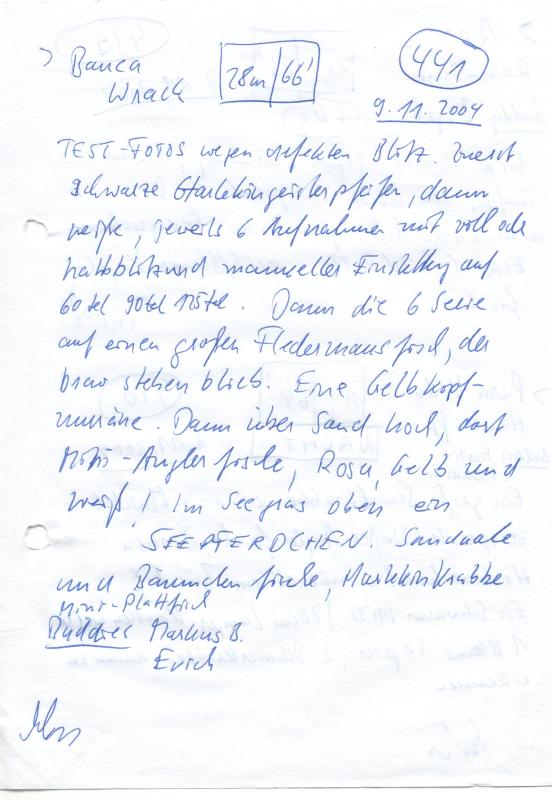 > Banca 28m/66' 441
Wrack
9.11.2004
TEST-FOTOS wegen defekten Blitz. Zuerst
schwarze Harlekingeisterpfeifen, dann
weiße, jeweils 6 Aufnahmen mit voll oder
halbblitz und manueller Einstellung auf
60tel 90tel 125tel. Dann die 6 Serie
auf einen großen Fledermausfisch, der
brav stehen blieb. Eine Gelbkopf-
muräne. Dann über Sand hoch, dort
Mini-Anglerfische, Rosa, Gelb und
weiß! Im Seegras oben ein
SEEPFERDCHEN. Sandaale
und Bäumchenfische, Harlekinkrabbe
Mini-Plattfisch
Buddies Markus B.
Erich